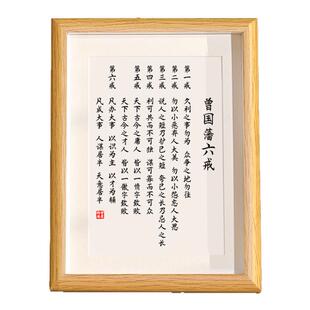 曾国藩六戒
第一戒 久利之事勿为 众争之地勿往
第二戒 勿以小恶弃人大美 勿以小怨忘人大恩
第三戒 说人之短乃护己之短 夸己之长乃忌人之长
第四戒 利可共而不可独 谋可寡而不可众
第五戒 天下古今之庸人 皆以一惰字致败
天下古今之才人 皆以一傲字致败
第六戒 凡办大事 以识为主 以才为辅
凡成大事 人谋居半 天意居半